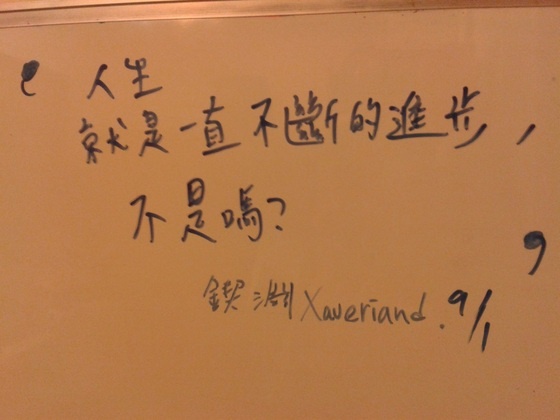 ‘ 人生
就是一直不斷的進步,
不是嗎?
’
Xaveriand. 9/1